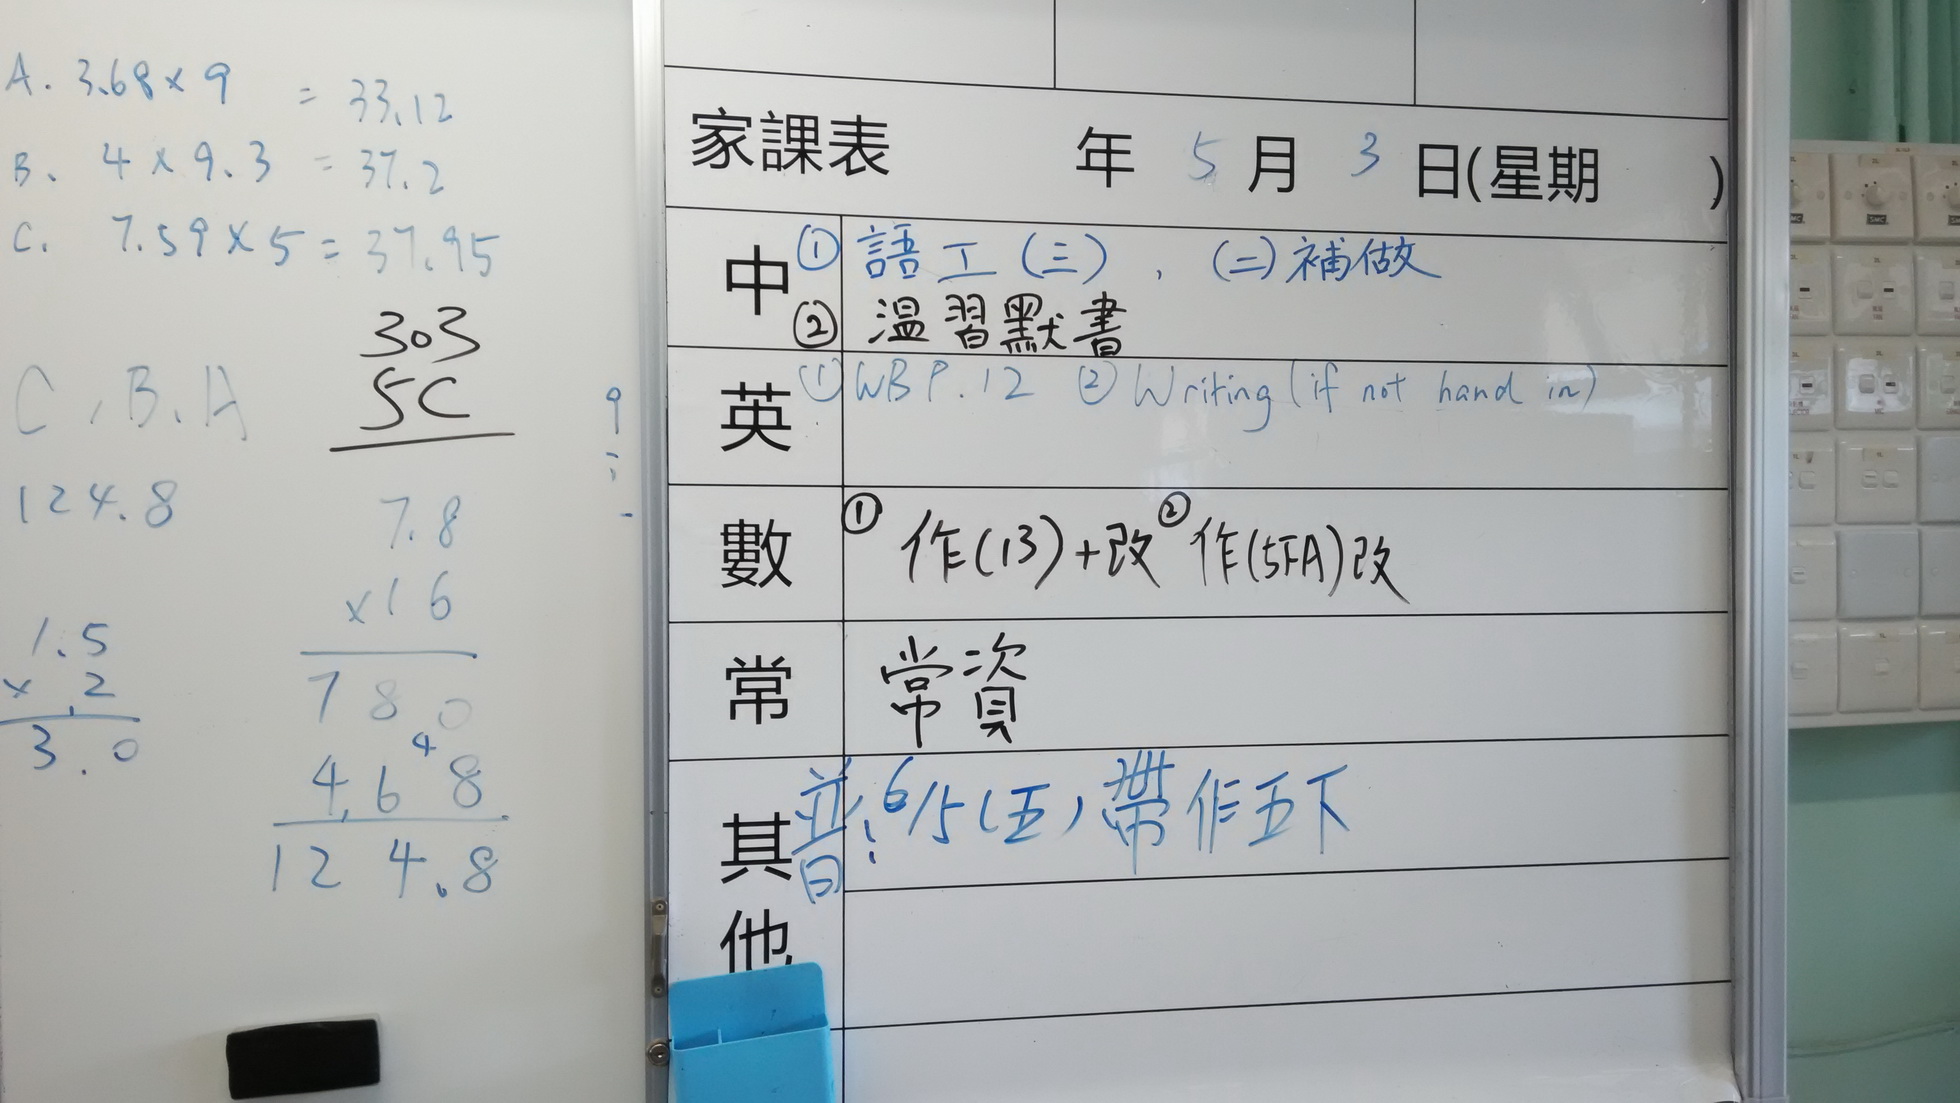 A. 3.68 × 9 = 33.12
B. 4 × 9.3 = 37.2
C. 7.59 × 5 = 37.95
303
5C
C, B, A
124.8
7.8
×16
780
4
4,68
124.8
1.5
× .2
3.0
9
家課表 年 5 月 3 日(星期 )
中 ① 語工(三), (二)補做
② 溫習默書
英 ① WB P.12 ② Writing (if not hand in)
數 ① 作(13)+改 ② 作(5下A)改
常 常資
其他 普: 6/5(五)帶作五下